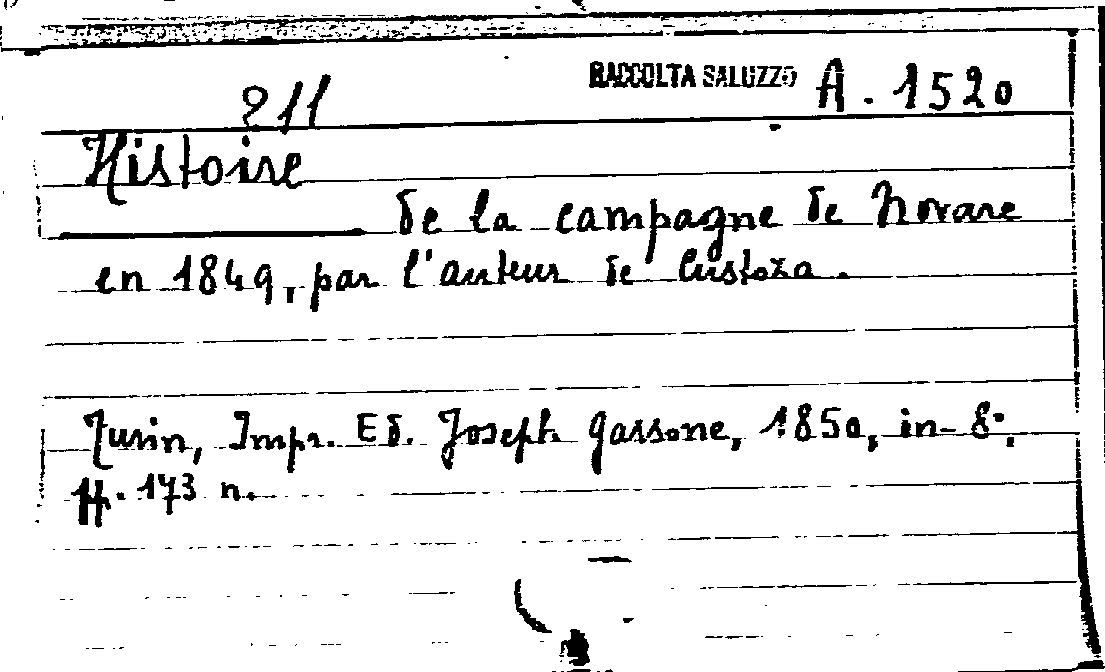 RACCOLTA SALUZZO A. 1520
211
Histoire
de la campagne de Novare
en 1849, par l'auteur de Custoza.
Turin, Impr. Ed. Joseph Gassone, 1850, in-8°,
pp. 173 n.